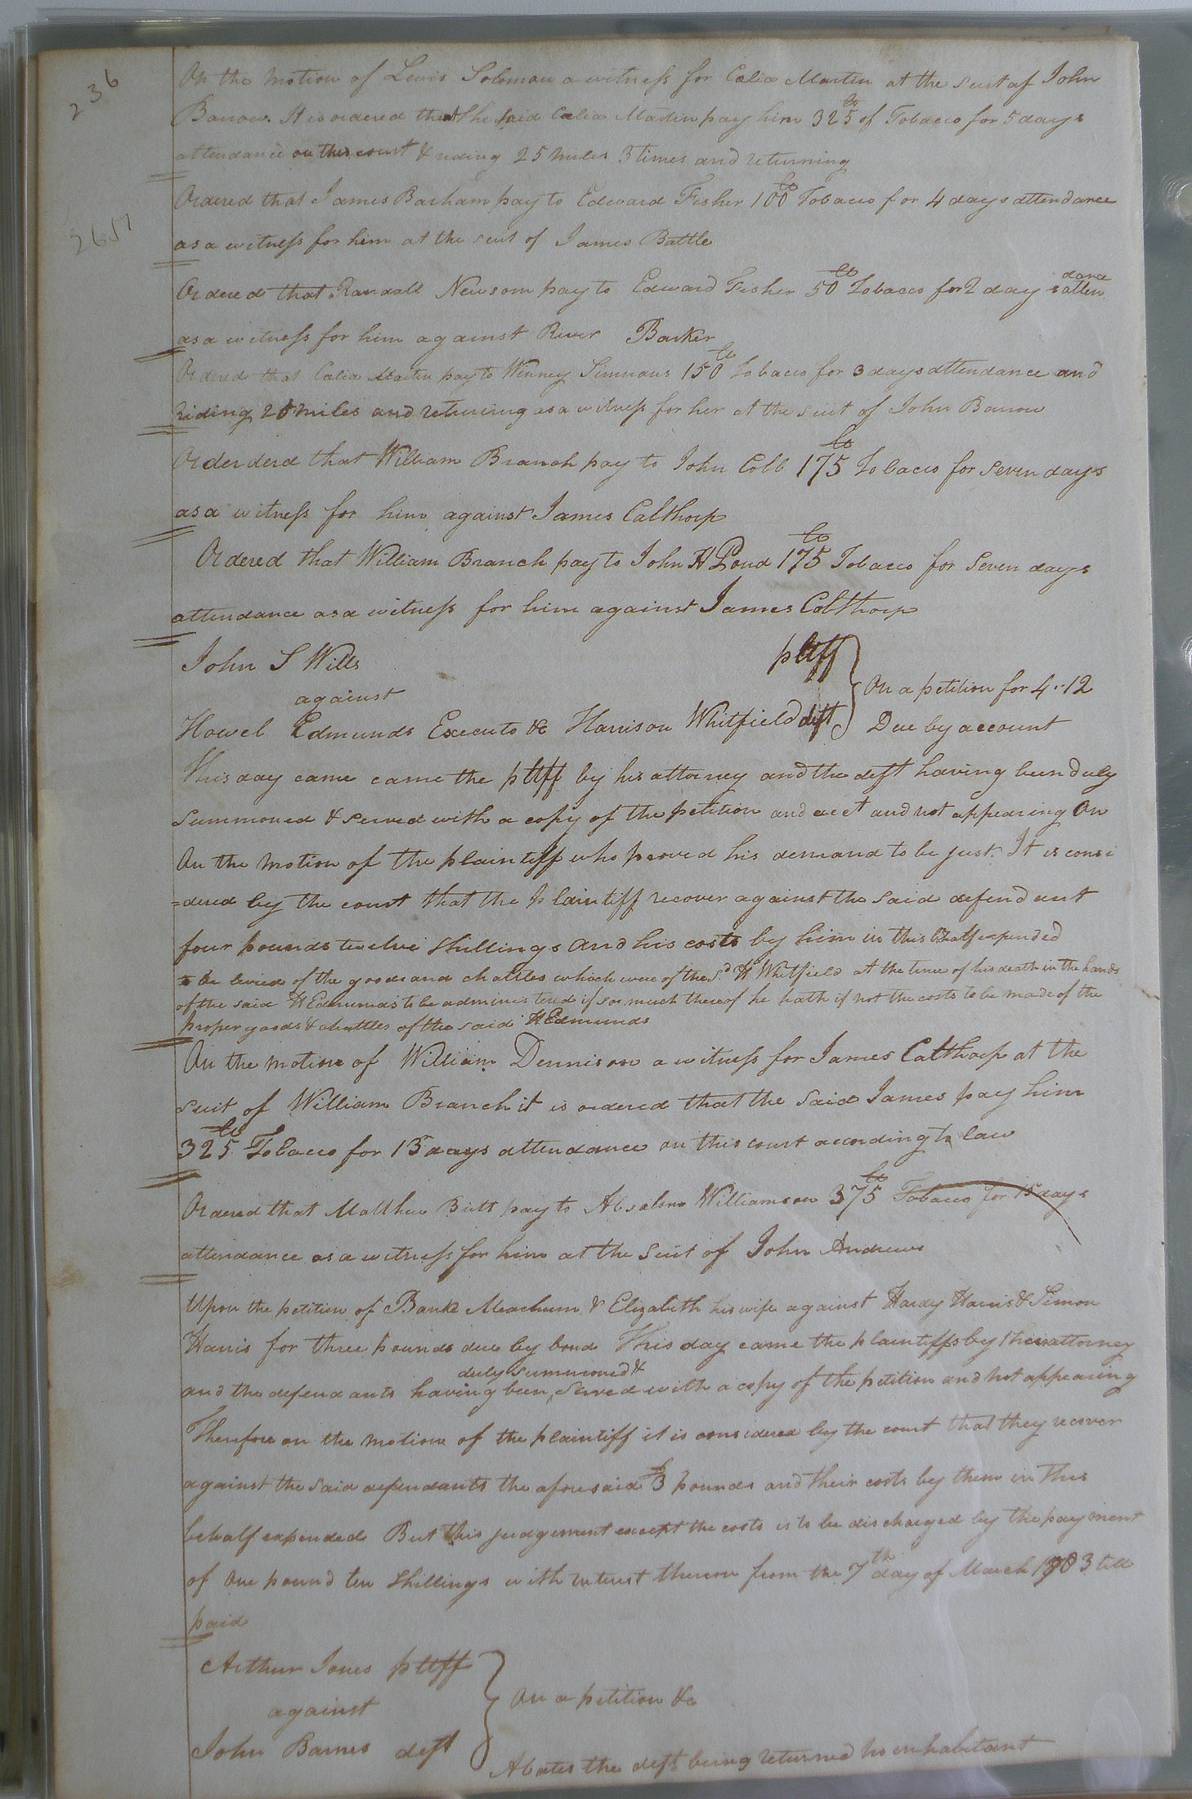 236
On the motion of Lewis Solomon a witness for Celia Martin at the suit of John
Barrow. It is ordered that the said Celia Martin pay him 325 lb of Tobacco for 5 days
attendance on this court & riding 25 miles 3 times and returning
Ordered that James Barham pay to Edward Fisher 100 lb Tobacco for 4 days attendance
2651
as a witness for him at the suit of James Battle
Ordered that Randall Newsom pay to Edward Fisher 50 lb Tobacco for 2 days attendance
as a witness for him against River Barker
Ordered that Celia Martin pay to Winney Simmons 150 lb Tobacco for 3 days attendance and
riding 25 miles and returning as a witness for her at the suit of John Barrow
Orderderd that William Branch pay to John Cobb 175 lb Tobacco for seven days
as a witness for him against James Calthorp
Ordered that William Branch pay to John H Pond 175 lb Tobacco for Seven days
attendance as a witness for him against James Colthorp
John S Wills pltff
against
On a petition for 4..12
Howel Edmunds Executo &c Harrison Whitfield deft Due by account
This day came came the pltff by his attorney and the deft having been duly
summoned & served with a copy of the petition and acct and not appearing On
On the motion of the plaintiff who proved his demand to be just. It is consi
=dered by the court that the plaintiff recover against the said defendant
four pounds twelve Shillings and his costs by him in this behalf expended
to be levied of the goods and chattles which were of the sd H Whitfield at the time of his death in the hands
of the said H Edmunds to be administered if so much thereof he hath if not the costs to be made of the
proper goods & chattles of the said H Edmunds
On the motion of William Dennison a witness for James Calthorp at the
suit of William Branch it is ordered that the said James pay him
325 lb Tobacco for 13 days attendance on this court according to law
Ordered that Matthew Britt pay to Absalom Williamson 375 lb Tobacco for 15 days
attendance as a witness for him at the suit of John Andrews
Upon the petition of Banks Meachum & Elizabeth his wife against Hardy Harris & Simon
Harris for three pounds due by bond This day came the plaintiffs by their attorney
duly summoned &
and the defendants having been, served with a copy of the petition and not appearing
Therefore on the motion of the plaintiff it is considered by the court that they recover
against the said defendants the aforesaid 3 pounds and their costs by them in this
behalf expended But this judgement except the costs is to be discharged by the payment
of One pound ten Shillings with interest thereon from the 7th day of March 1783 till
paid
Arthur Jones pltff
against
On a petition &c
John Barnes deft
Abates the deft being returned no inhabitant